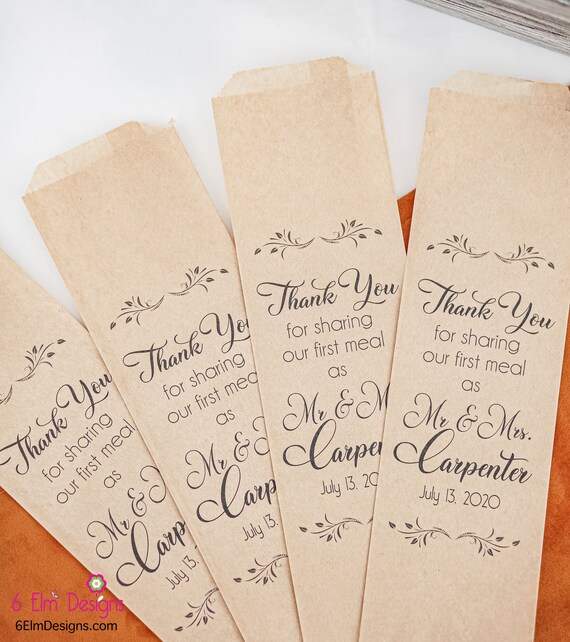 Thank You
for sharing
our first meal
as
Mr & Mrs.
Carpenter
July 13, 2020
Thank You
for sharing
our first meal
as
Mr & M
Carpenter
July 13, 202
Thank You
for sharing
our first meal
as
Mr &
Carpe
July 13, 20
Thank You
for sharing
our first meal
as
Mr & M
Carpen
July 13,
6 Elm Designs
6ElmDesigns.com